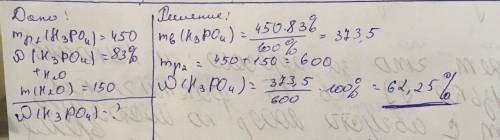 Дано:
mр1(H3PO4)=450
ω(H3PO4)=83%
+H2O
m(H2O)=150
ω(H3PO4)-?
Решение:
mв(H3PO4)= 450·83% / 100% = 373,5
mр2= 450+150=600
ω(H3PO4)= 373,5 / 600 · 100% = 62,25%